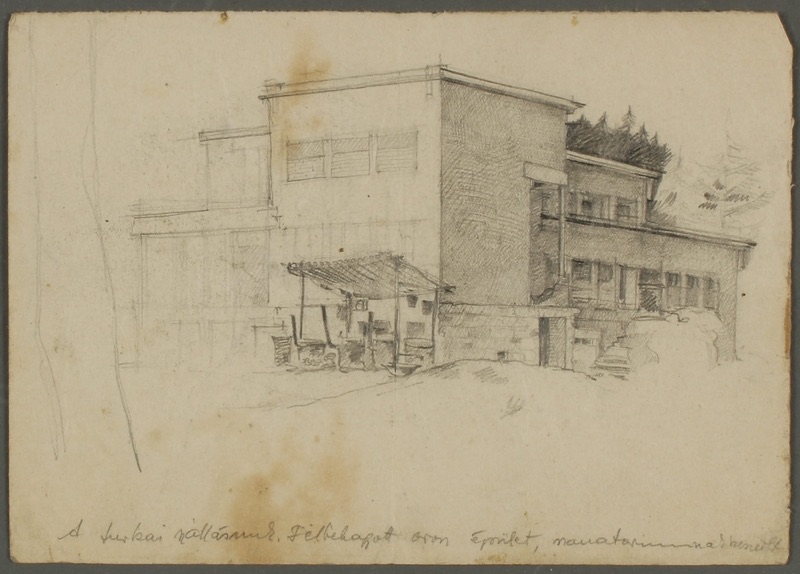 A turkai szállásunk. Félbehagyott orosz épület, szanatóriumnak készült